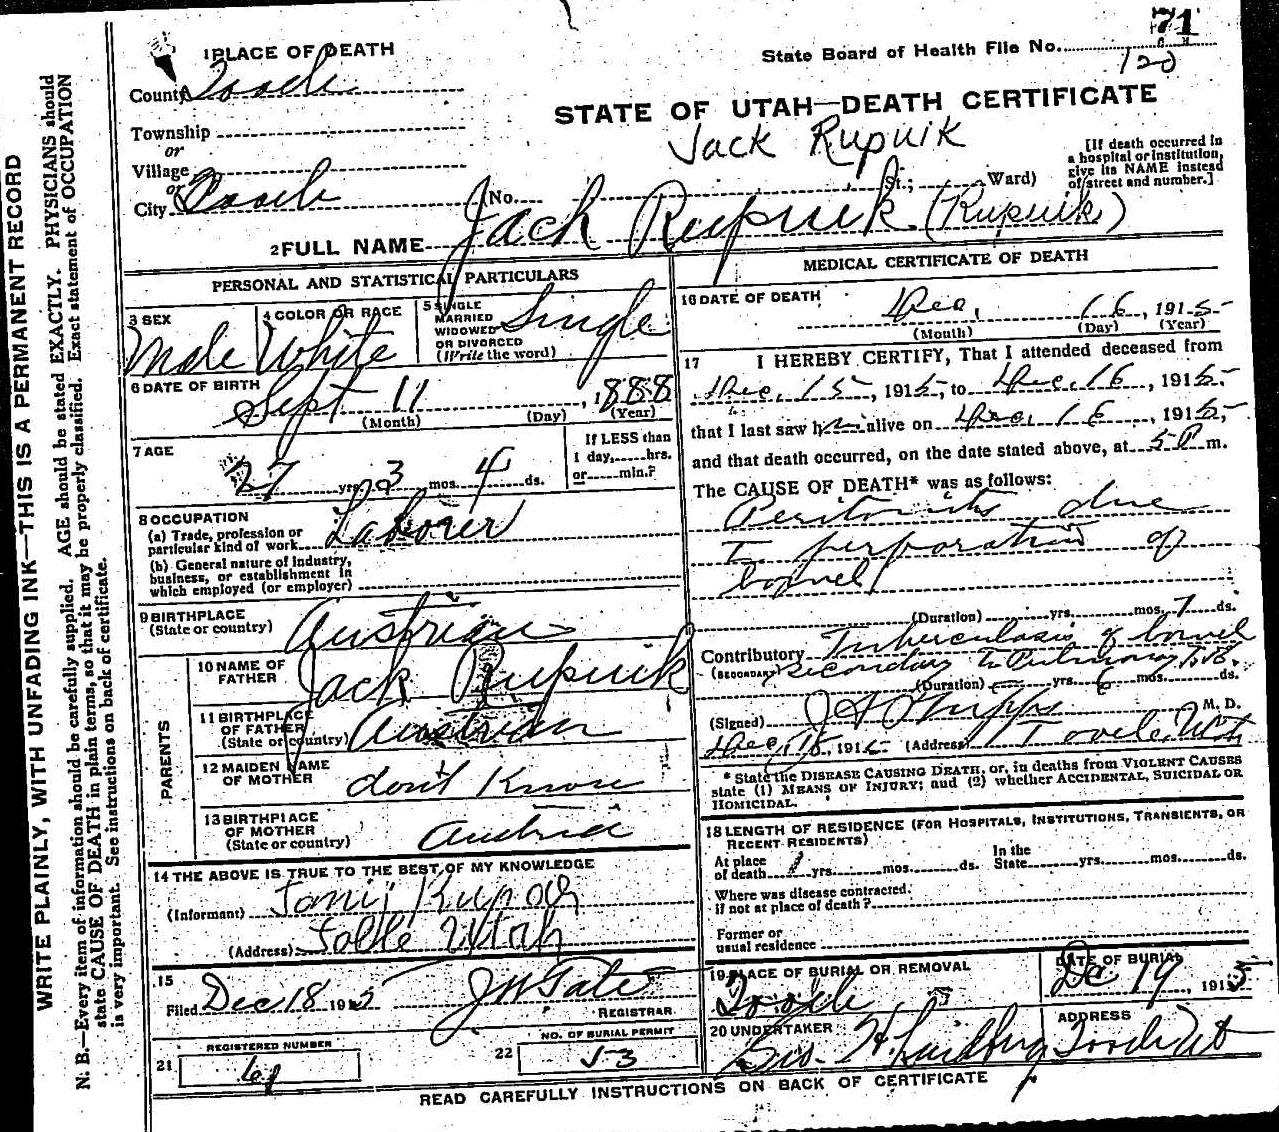 71
State Board of Health File No.
120
STATE OF UTAH—DEATH CERTIFICATE
Jack Rupnik
1 PLACE OF DEATH
County Tooele
Township
or
Village
or
City Tooele
(No. St.; Ward)
[If death occurred in
a hospital or institution,
give its NAME instead
of street and number.]
2 FULL NAME Jack Rupnik (Rupnik)
PERSONAL AND STATISTICAL PARTICULARS
3 SEX
Male
4 COLOR OR RACE
White
5 SINGLE
MARRIED
WIDOWED
OR DIVORCED
(Write the word)
Single
6 DATE OF BIRTH
Sept 11, 1888
(Month) (Day) (Year)
7 AGE
27 yrs. 3 mos. 4 ds.
If LESS than
1 day, hrs.
or min.?
8 OCCUPATION
(a) Trade, profession or
particular kind of work Laborer
(b) General nature of industry,
business, or establishment in
which employed (or employer)
9 BIRTHPLACE
(State or country) Austrian
PARENTS
10 NAME OF
FATHER Jack Rupnik
11 BIRTHPLACE
OF FATHER
(State or country) Austrian
12 MAIDEN NAME
OF MOTHER don't Know
13 BIRTHPLACE
OF MOTHER
(State or country) Austria
14 THE ABOVE IS TRUE TO THE BEST OF MY KNOWLEDGE
(Informant)
(Address) Utah
15
Filed Dec 18 1915
REGISTRAR
21 REGISTERED NUMBER
61
22 NO. OF BURIAL PERMIT
53
MEDICAL CERTIFICATE OF DEATH
16 DATE OF DEATH
Dec. 16, 1915
(Month) (Day) (Year)
17 I HEREBY CERTIFY, That I attended deceased from
Dec. 15, 1915, to Dec. 16, 1915.
that I last saw him alive on Dec. 16, 1915,
and that death occurred, on the date stated above, at 5 P m.
The CAUSE OF DEATH* was as follows:
Peritonitis due
To perforation of
bowel
(Duration) yrs. mos. 7 ds.
Contributory Tuberculosis of bowel
(SECONDARY) secondary to Pulmonary
(Duration) yrs. 6 mos. ds.
(Signed) M. D.
Dec, 191 (Address) Tooele, Utah
* State the DISEASE CAUSING DEATH, or, in deaths from VIOLENT CAUSES
state (1) MEANS OF INJURY; and (2) whether ACCIDENTAL, SUICIDAL OR
HOMICIDAL.
18 LENGTH OF RESIDENCE (FOR HOSPITALS, INSTITUTIONS, TRANSIENTS, OR
RECENT RESIDENTS)
At place
of death 1 yrs. mos. ds.
In the
State yrs. mos. ds.
Where was disease contracted.
if not at place of death?
Former or
usual residence
19 PLACE OF BURIAL OR REMOVAL
Tooele
DATE OF BURIAL
Dec 19, 1915
20 UNDERTAKER
ADDRESS
Tooele Ut
READ CAREFULLY INSTRUCTIONS ON BACK OF CERTIFICATE
WRITE PLAINLY, WITH UNFADING INK—THIS IS A PERMANENT RECORD
N. B.—Every item of information should be carefully supplied. AGE should be stated EXACTLY. PHYSICIANS should
state CAUSE OF DEATH in plain terms, so that it may be properly classified. Exact statement of OCCUPATION
is very important. See instructions on back of certificate.